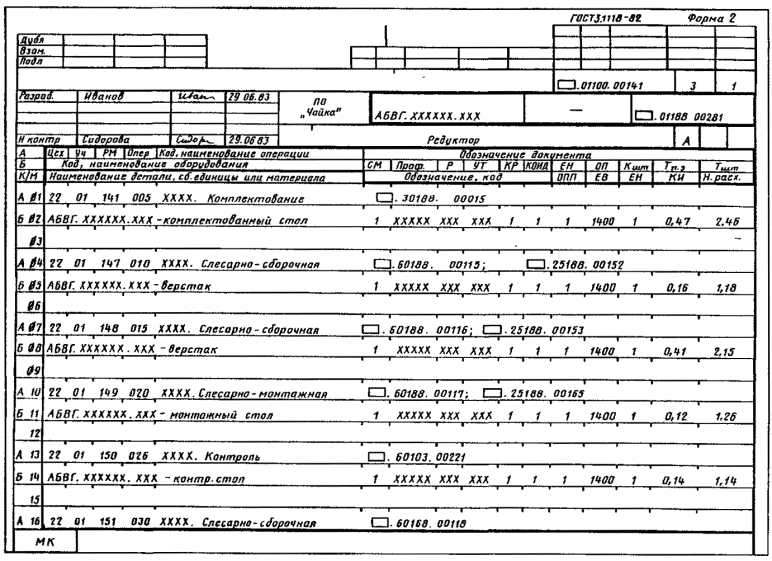 ГОСТ 3.1118-82 Форма 2
Дубл
Взам.
Подл
.01100.00141 3 1
Разраб. Иванов 29 06.83
ПО „Чайка" АБВГ.XXXXXX.XXX — .01188 00281
Н контр Сидорова 29.06 83 Редуктор А
А Цех Уч РМ Опер Код, наименование операции Обозначение документа
Б Код, наименование оборудования СМ Проф. Р УТ КР КОИД ЕН ОП Кшт Тп.з Тшт
К/М Наименование детали, сб. единицы или материала Обозначение, код ОПП ЕВ ЕН КИ Н. расх.
А 01 22 01 141 005 XXXX. Комплектование .30188. 00015
Б 02 АБВГ.XXXXXX.XXX-комплектованный стол 1 XXXXX XXX XXX 1 1 1 1400 1 0,47 2,46
03
А 04 22 01 147 010 XXXX. Слесарно-сборочная .60188. 00115; .25188. 00152
Б 05 АБВГ.XXXXXX.XXX-верстак 1 XXXXX XXX XXX 1 1 1 1400 1 0,16 1,18
06
А 07 22 01 148 015 XXXX. Слесарно-сборочная .60188. 00116; .25188. 00153
Б 08 АБВГ.XXXXXX.XXX-верстак 1 XXXXX XXX XXX 1 1 1 1400 1 0,41 2,15
09
А 10 22 01 149 020 XXXX. Слесарно-монтажная .60188. 00117; .25188. 00165
Б 11 АБВГ.XXXXXX.XXX-монтажный стол 1 XXXXX XXX XXX 1 1 1 1400 1 0,12 1,26
12
А 13 22 01 150 026 XXXX. Контроль .60103. 00221
Б 14 АБВГ.XXXXXX.XXX-контр. стол 1 XXXXX XXX XXX 1 1 1 1400 1 0,14 1,14
15
А 16 22 01 151 030 XXXX. Слесарно-сборочная .60168. 00118
МК